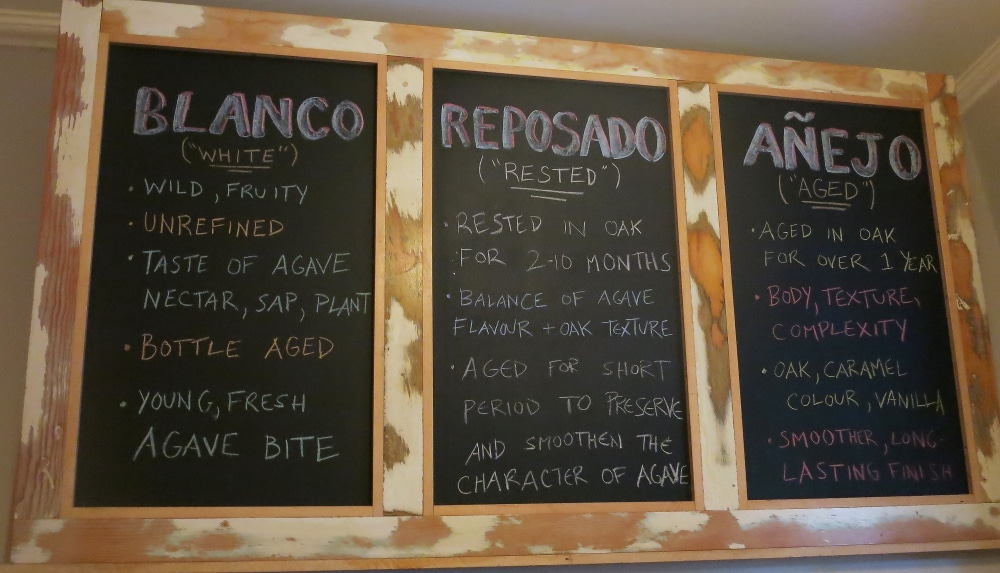 BLANCO
("WHITE")
• WILD, FRUITY
• UNREFINED
• TASTE OF AGAVE
NECTAR, SAP, PLANT
• BOTTLE AGED
• YOUNG, FRESH
AGAVE BITE
REPOSADO
("RESTED")
• RESTED IN OAK
FOR 2-10 MONTHS
• BALANCE OF AGAVE
FLAVOUR + OAK TEXTURE
• AGED FOR SHORT
PERIOD TO PRESERVE
AND SMOOTHEN THE
CHARACTER OF AGAVE
AÑEJO
("AGED")
• AGED IN OAK
FOR OVER 1 YEAR
• BODY, TEXTURE,
COMPLEXITY
• OAK, CARAMEL
COLOUR, VANILLA
• SMOOTHER, LONG-
LASTING FINISH